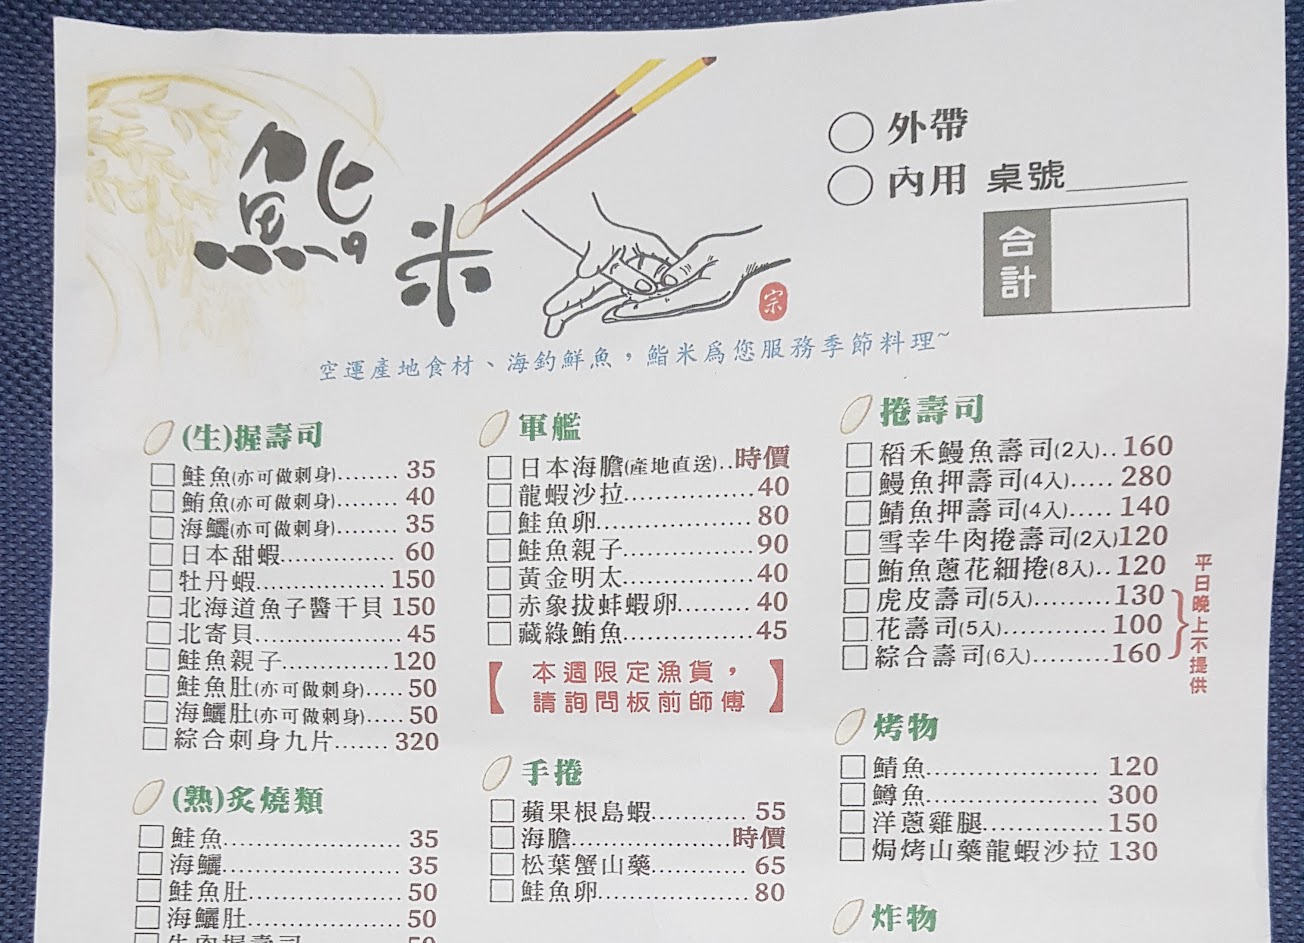 鮨米
宗
外帶
內用 桌號
合計
空運產地食材、海釣鮮魚，鮨米為您服務季節料理~
(生)握壽司
鮭魚(亦可做刺身)........ 35
鮪魚(亦可做刺身)........ 40
海鱺(亦可做刺身)........ 35
日本甜蝦............. 60
牡丹蝦............... 150
北海道魚子醬干貝 150
北寄貝.................. 45
鮭魚親子............. 120
鮭魚肚(亦可做刺身)..... 50
海鱺肚(亦可做刺身)..... 50
綜合刺身九片....... 320
(熟)炙燒類
鮭魚..................... 35
海鱺..................... 35
鮭魚肚.................. 50
海鱺肚.................. 50
牛肉握壽司 50
軍艦
日本海膽(產地直送)..時價
龍蝦沙拉............... 40
鮭魚卵.................. 80
鮭魚親子............... 90
黃金明太............... 40
赤象拔蚌蝦卵......... 40
藏綠鮪魚............... 45
【本週限定漁貨，
請詢問板前師傅】
手捲
蘋果根島蝦............ 55
海膽.....................時價
松葉蟹山藥............ 65
鮭魚卵.................. 80
捲壽司
稻禾鰻魚壽司(2入).. 160
鰻魚押壽司(4入)..... 280
鯖魚押壽司(4入)..... 140
雪幸牛肉捲壽司(2入)120
鮪魚蔥花細捲(8入).. 120
虎皮壽司(5入)......... 130
花壽司(5入)............ 100
綜合壽司(6入)......... 160
平日晚上不提供
烤物
鯖魚..................... 120
鱒魚..................... 300
洋蔥雞腿.............. 150
焗烤山藥龍蝦沙拉 130
炸物